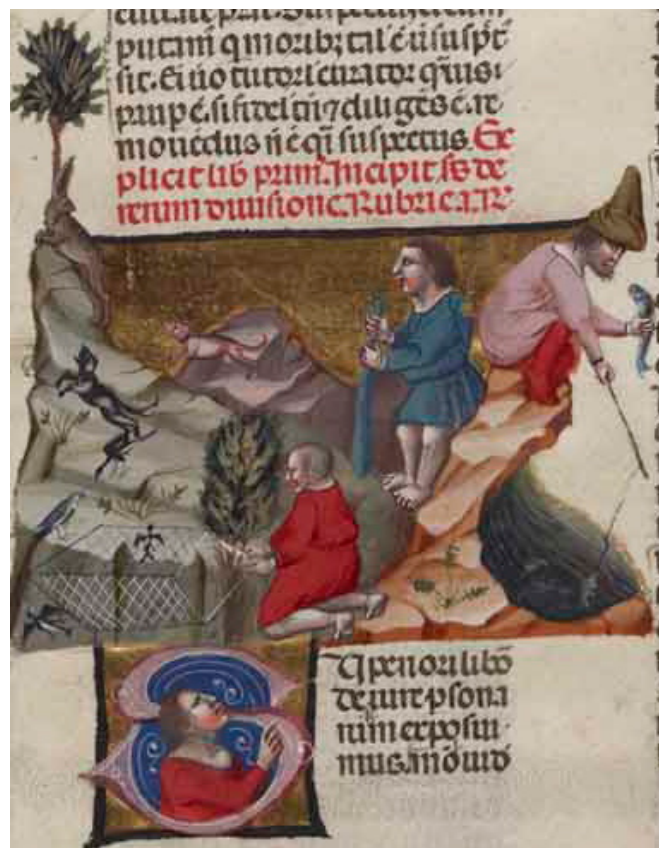 putam q moribꝫ tal ē ii suspct
sit. Ei ūo tutor l curator q̄uis
paup ē. si fidel tn̄ ⁊ diliges ē. re
mouedus n̄ ē q̄i suspectus. Ex
plicit lib prim. Incipit ss de
rerum diuisione. Rubrica. R
S Upeƥiori libº
de iure psona
rum exposui
mus. modo uid